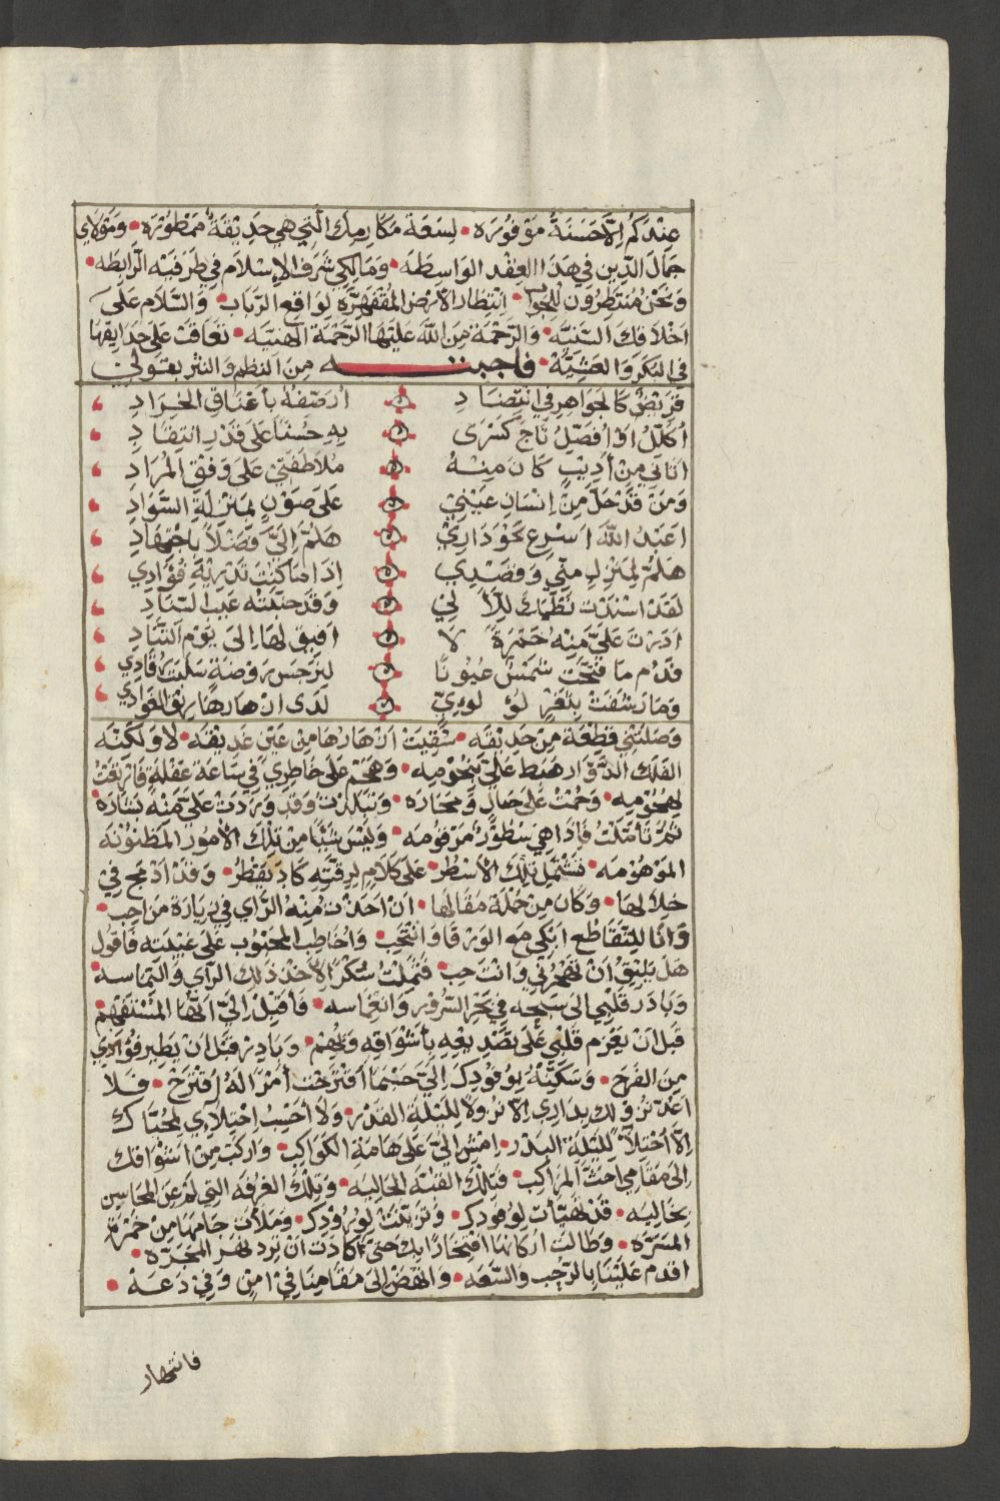 عِنْدَكُم اِلّا حَسَنَةُ مَوْفُورَه • لِسَعَة مَكَارِمِكَ الَّتِي هِيَ حَدِيْقَةُ مَمْطُوْرَه • وَمَوْلَايَ
جَمَالَ الدِّين فِي هَذَا العِقْد الوَاسِطَه • وَمَالِكِي شَرَف الإِسْلَام فِي طَرَفَيْهِ الرَّابِطَه •
وَنَحْنُ مُنْتَظِرُون لِلْجَوَاب • اِنْتِظَار الأَرْضِ المُقْفَهِرَّه لِوَاقِعِ الرَّبَاب • وَالسَّلَام عَلَى
اَخْلَاقِكَ السَّنِيَّه • وَالرَّحْمَة مِنَ اللَّه عَلَيْهَا الرَّحْمَة الهَنِيَّه • تَعَاقَبَ عَلَى حَدَائِقِهَا
فِي البُكْرَة وَالعَشِيَّه • فاجبتـــه مِنَ النظم والنثر بقولي
قَرِيْضٌ كَالْجَوَاهِرِ فِي انْتِضَادِ • اُرَصِّفُهُ بِأَعْنَاقِ الخِرَادِ
اُكَلِّلُ اَوْ اُفَصِّلُ تَاجَ كِسْرَى • بِهِ حُسْنًا عَلَى قَدْرِ انْتِقَادِ
اَتَانِي مِنْ أَدِيْبٍ كَانَ مِنْهُ • مُلَاطَفَتِي عَلَى وَفْقِ المُرَادِ
وَمَنْ قَدْ حَلَّ مِنْ اِنْسَانِ عَيْنِيْ • عَلَى صَوْنٍ بِمَنْزِلَةِ السَّوَادِ
اَعَبْدُ اللَّهِ اَسْرِعْ نَحْوَ دَارِيْ • هَلُمَّ اِلَيَّ فَضْلًا بِاجْتِهَادِ
هَلُمَّ لِمَنْزِلٍ مِنِّي وَقَصْدِيْ • اِذَا مَا كُنْتَ تَدْرِيْهِ فُؤَادِي
لَقَدْ اَسْنَدْتَ نَظْمَكَ لِلْآ لِيْ • وَقَدْ جَنَّبْتَهُ عَيْبَ السِّنَادِ
اَدَرْتَ عَلَيَّ مِنْهُ خَمْرَةً لَا • اُفِيْقُ لَهَا اِلَى يَوْمِ التَّنَادِ
فَدُمْ مَا فَتَّحَتْ شَمْسٌ عُيُونًا • لِنَرْجِسِ رَوْضَةٍ سَلَبَتْ رُقَادِي
وَمَا رَشَفَتْ بِثَغْرٍ لُؤْ لُوِيٍّ • لَدَى ازْهَارِهَا رِيْقَ الغَوَادِي
وَصَلَتْنِي قِطْعَة مِنْ حَدِيْقَه • سُقِيَتْ اَزْهَارُهَا مِنْ عَيْنٍ غَدِيْقَه • لَا وَلَكِنَّه
الفَلَك الدَّوَّار هَبَطَ عَلَيَّ بِنُجُوْمِه • وَهَجَمَ عَلَى خَاطِرِي فِي سَاعَةِ غَفْلَةٍ فَارْتَعْتُ
لِهُجُوْمِه • وَحُمْتُ عَلَى خَيَالٍ وَمَحَارَه • وَتَبَلَّدْتُ وَقَدْ وَرَدَتْ عَلَيَّ مِنْهُ بِشَارَه
ثُمَّ تَأَمَّلْتُ فَاِذَا هِيَ سُطُوْرٌ مَرْقُومَه • وَلَيْسَ شَيْئًا مِنْ تِلْكَ الأُمُورِ المَظْنُوْنَه
المَوْهُوْمَه • تَشْتَمِل تِلْكَ الأَسْطُر • عَلَى كَلَامٍ لِرِقَّتِهِ كَادَ يَقْطُرُ • وَقَدْ اَدْمَجَ فِيْ
خِلَالِهَا • وَكَانَ مِنْ جُمْلَة مَقَالِهَا • اَنْ اَخَذْتَ مِنْهُ الرَّاي فِي زِيَارَة مَنْ اَحِب •
وَانَا لِلتَّقَاطُع اَبْكِي مَعَ الوَرْقَا وَانْتَحِب • وَاُخَاطِب المَحْبُوب عَلَى غَيْبَتِه فَاَقُول
هَلْ يَلِيْقُ اَنْ تَهْجُرَنِي وَانْتَ حِب • فَثَمِلْتُ سُكْرًا لِأَخْذِ ذَلِكَ الرَّأي وَالْتِمَاسه •
وَبَادَرَ قَلْبِي اِلَى سَبْحِه فِي بَحْرِ السُّرُور وَانْغِمَاسه • فَأَقْبِلْ اِلَيَّ اَيُّهَا المُسْتَفْهِمْ
قَبْل اَنْ يَعْزِم قَلْبِي عَلَى تَصْدِيْعِه بِأَشْوَاقِه وَيَهِمْ • وَبَادِرْ قَبْل اَنْ يَطِير فُؤَادِي
مِنَ الفَرَح • وَسَكِّنْهُ بِوُفُودِكَ اِلَيَّ حَيْثُمَا اقْتَرَحْتَ أَمْرًا لَهُ اقْتَرَحْ • فَلَا
اَعُدّ نُزُوْلَكَ بِدَارِي اِلَّا نُزُولًا لِلَيْلَةِ القَدْر • وَلَا أَحْسِب اِجْتِلَآئِي لِمُحَيَّاكَ
اِلَّا اجْتِلَآءً لِلَيْلَةِ البَدْر • اِمْشِ اِلَيَّ عَلَى هَامَةِ الكَوَاكِب • وَارْكَبْ مِنْ اَشْوَاقِكَ
اِلَى مَقَامِي اَحَثَّ المَرَاكِب • فَتِلْكَ القُبَّة الحَالِيَه • وَتِلْكَ الغُرْفَه الَّتِي لَمْ عَنِ المَحَاسِن
بِخَالِيَه • قَدْ تَهَيَّأَتْ لِوُفُودِكَ • وَتَزَيَّنَتْ لِوُرُوْدِكَ • وَمَلَأَتْ جَامَهَا مِنْ خَمْرَةِ
المَسَرَّه • وَطَالَتْ اَرْكَانُهَا افْتِخَارًا بِكَ حَتَّى كَادَتْ اَنْ تَرِد نَهَرَ المَجَرَّه •
اَقْدِم عَلَيْنَا بِالرُّحْبِ وَالسَّعَه • وَانْهَضْ اِلَى مَقَامِنَا فِيْ اَمْنٍ وَفِيْ دَعَهْ •